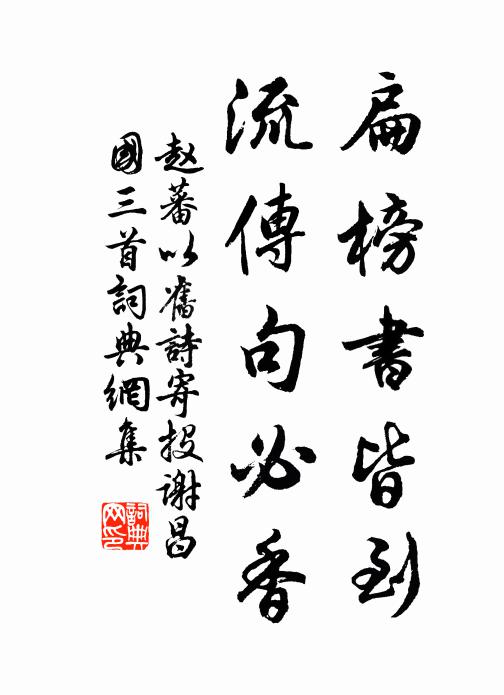 扁榜書皆到
流傳句必香
赵蕃以舊詩寄投謝昌
國三首詞典網集
詞典
网印